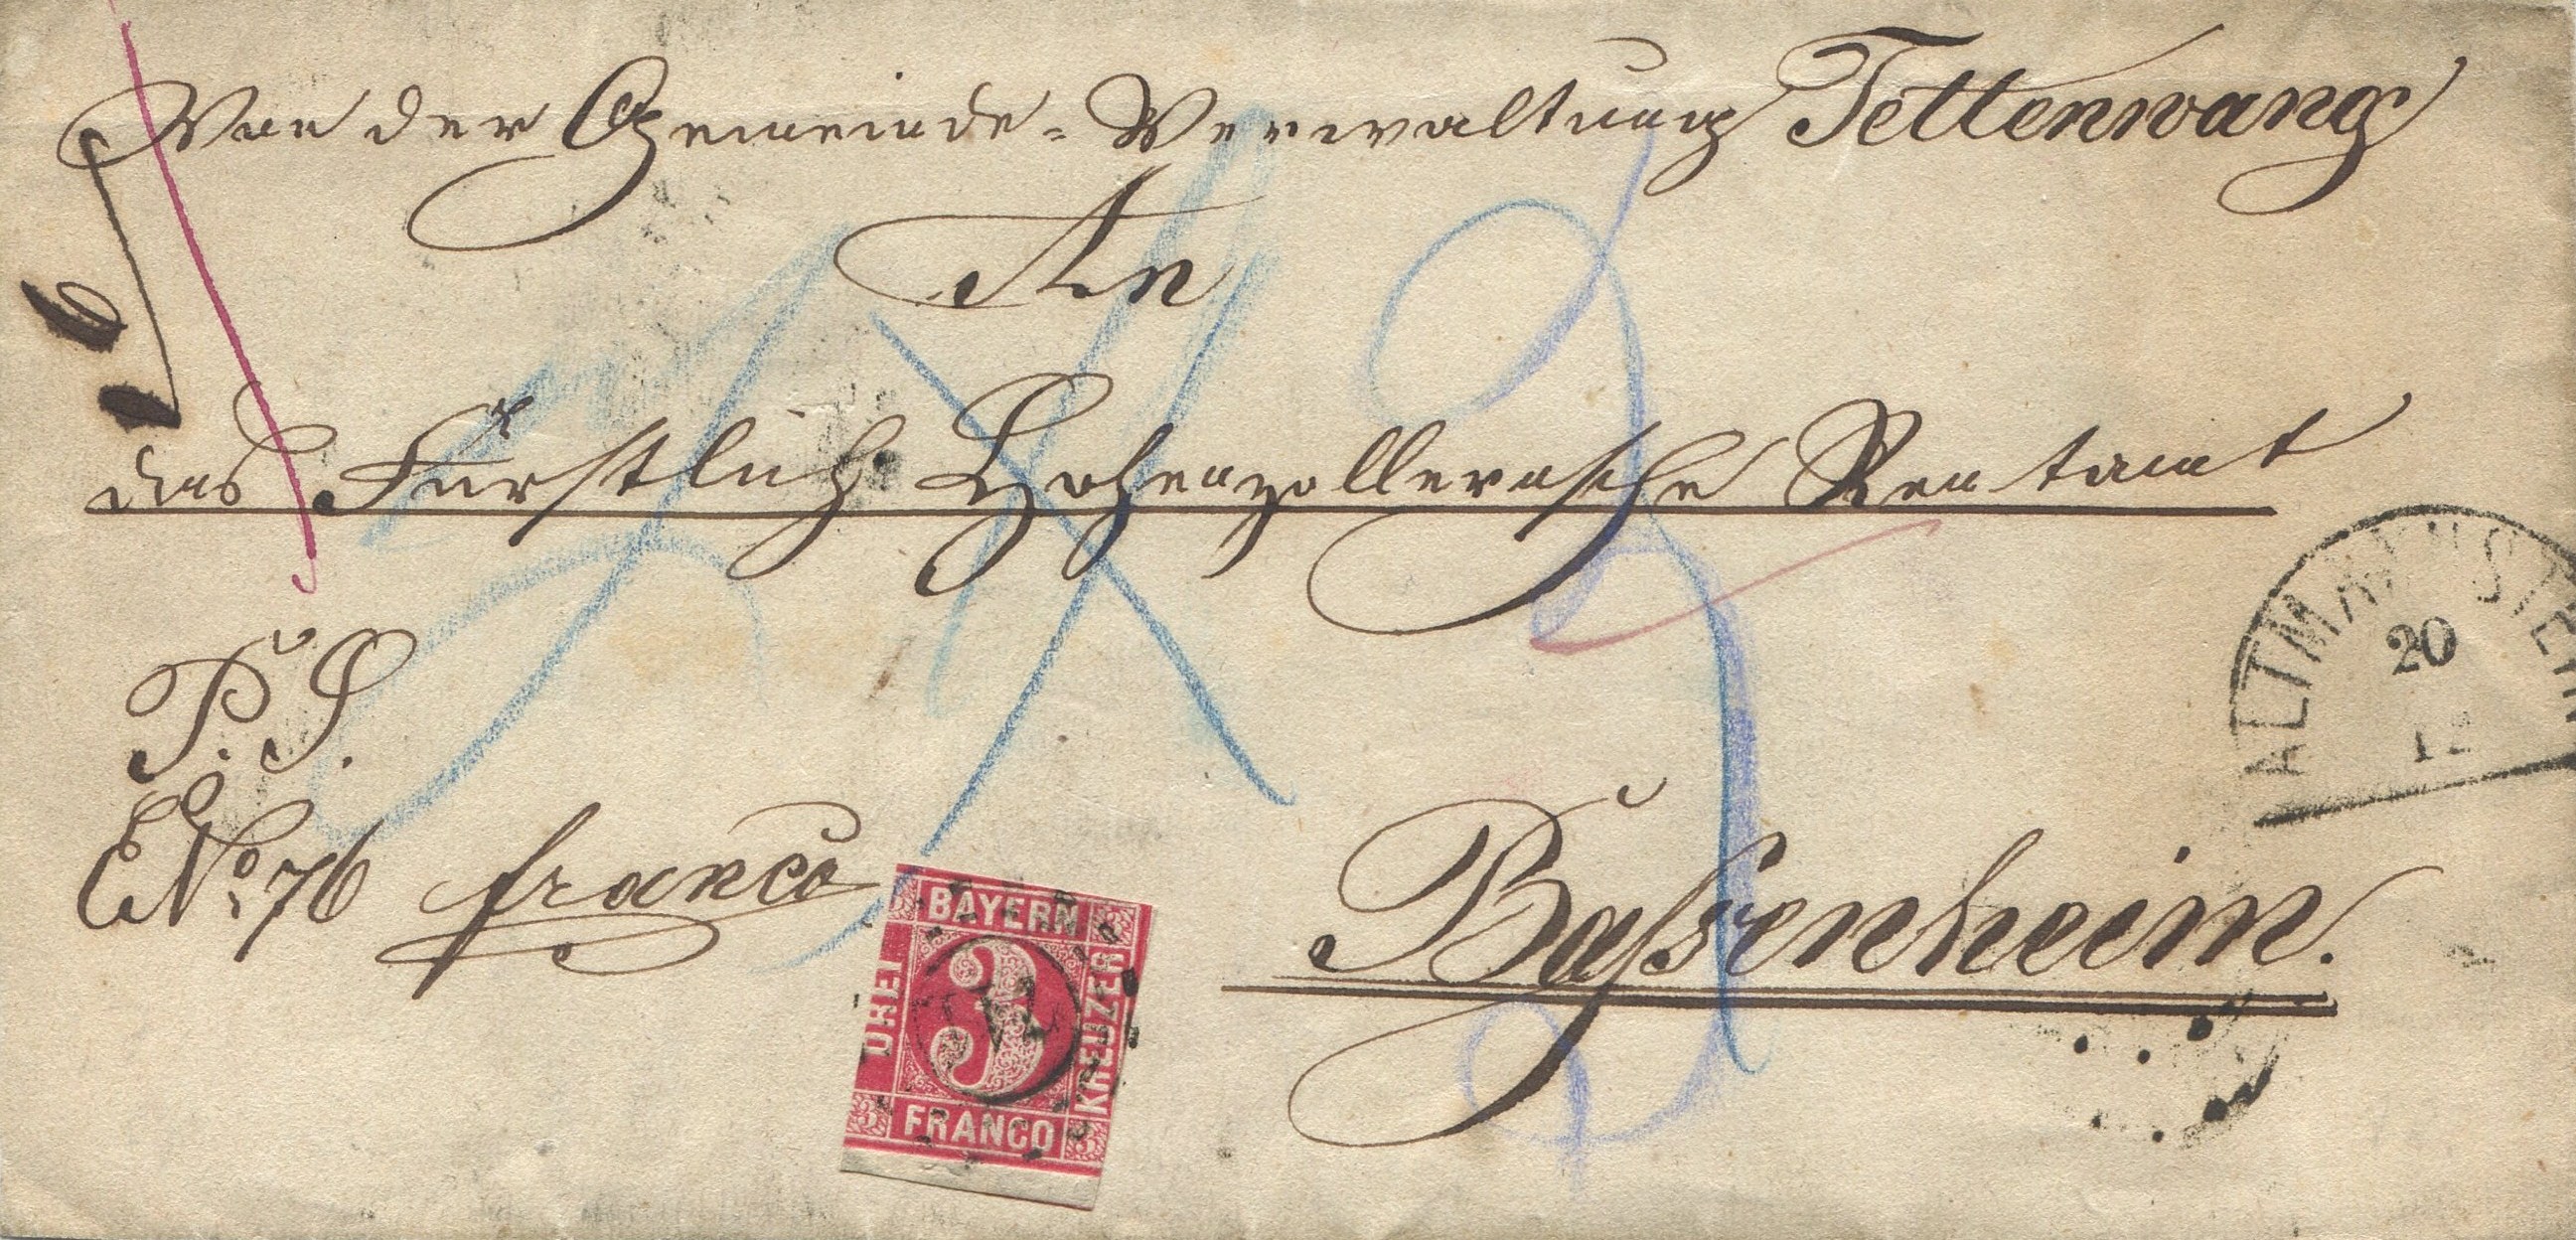 Von der Gemeinde-Verwaltung Tettenwang
An
das Fürstlich Hohenzollernsche Rentamt
P. S.
E No. 76 franco
Baßenheim.
ALTMANNSTEIN
20
12
BAYERN
DREI
3
KREUZER
FRANCO